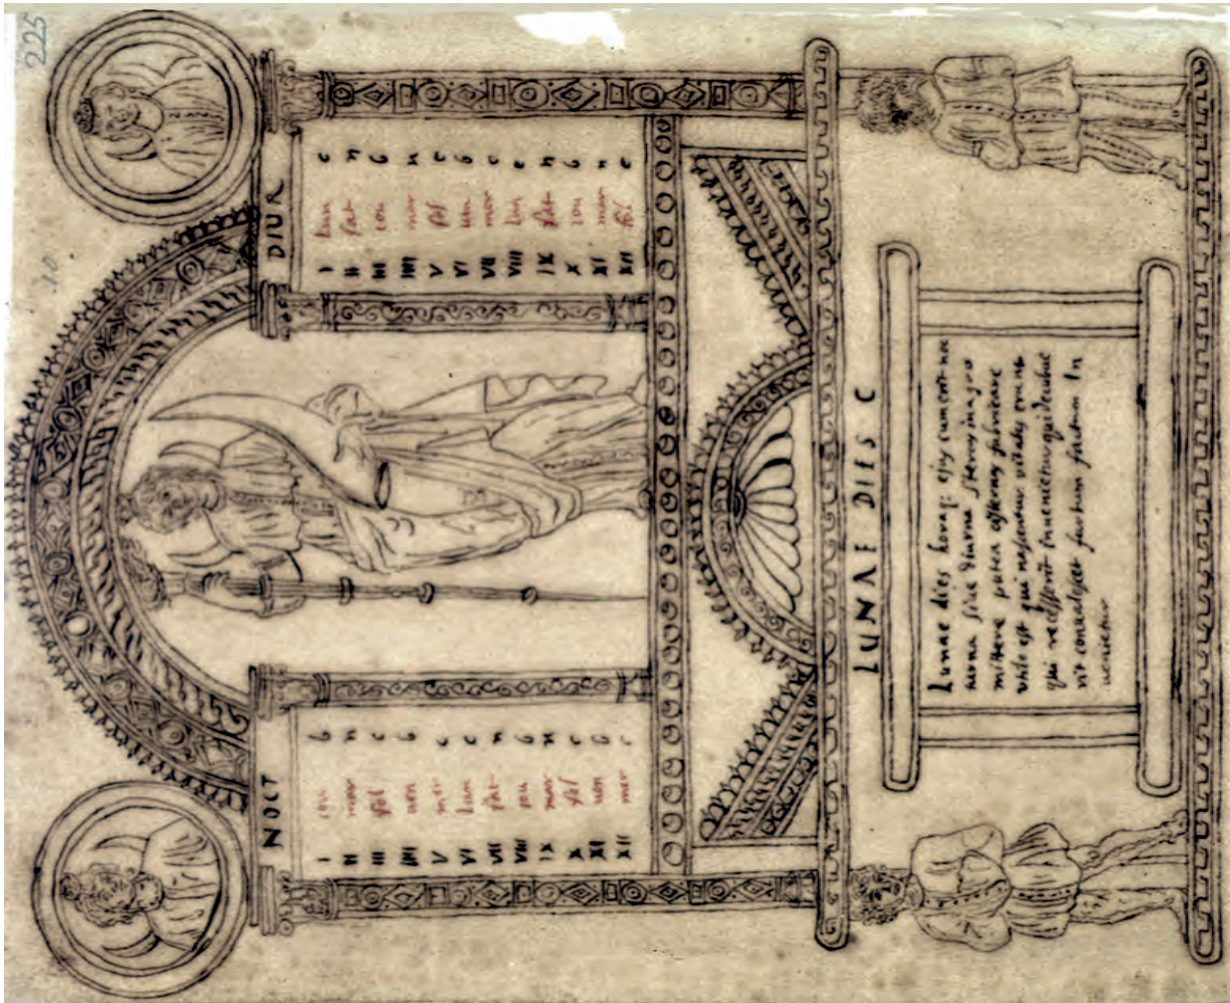 225
10
NOCT
I iou b
II mar n
III sol c
IIII uen b
V mer c
VI lun c
VII sat n
VIII iou b
IX mar n
X sol c
XI uen b
XII mer c
DIUR
I lun c
II sat n
III iou b
IIII mar n
V sol c
VI uen b
VII mer c
VIII lun c
IX sat n
X iou b
XI mar n
XII sol c
LUNAE DIES C
Lunae dies horaq: eius cum erit noc
turna siue diurna stercus in agro
mittere putea cisternas fabricare
utile est qui nascentur vitales erunt
qui recesserit inuenietur qui decubue
rit conualescet furtum factum In
uenietur